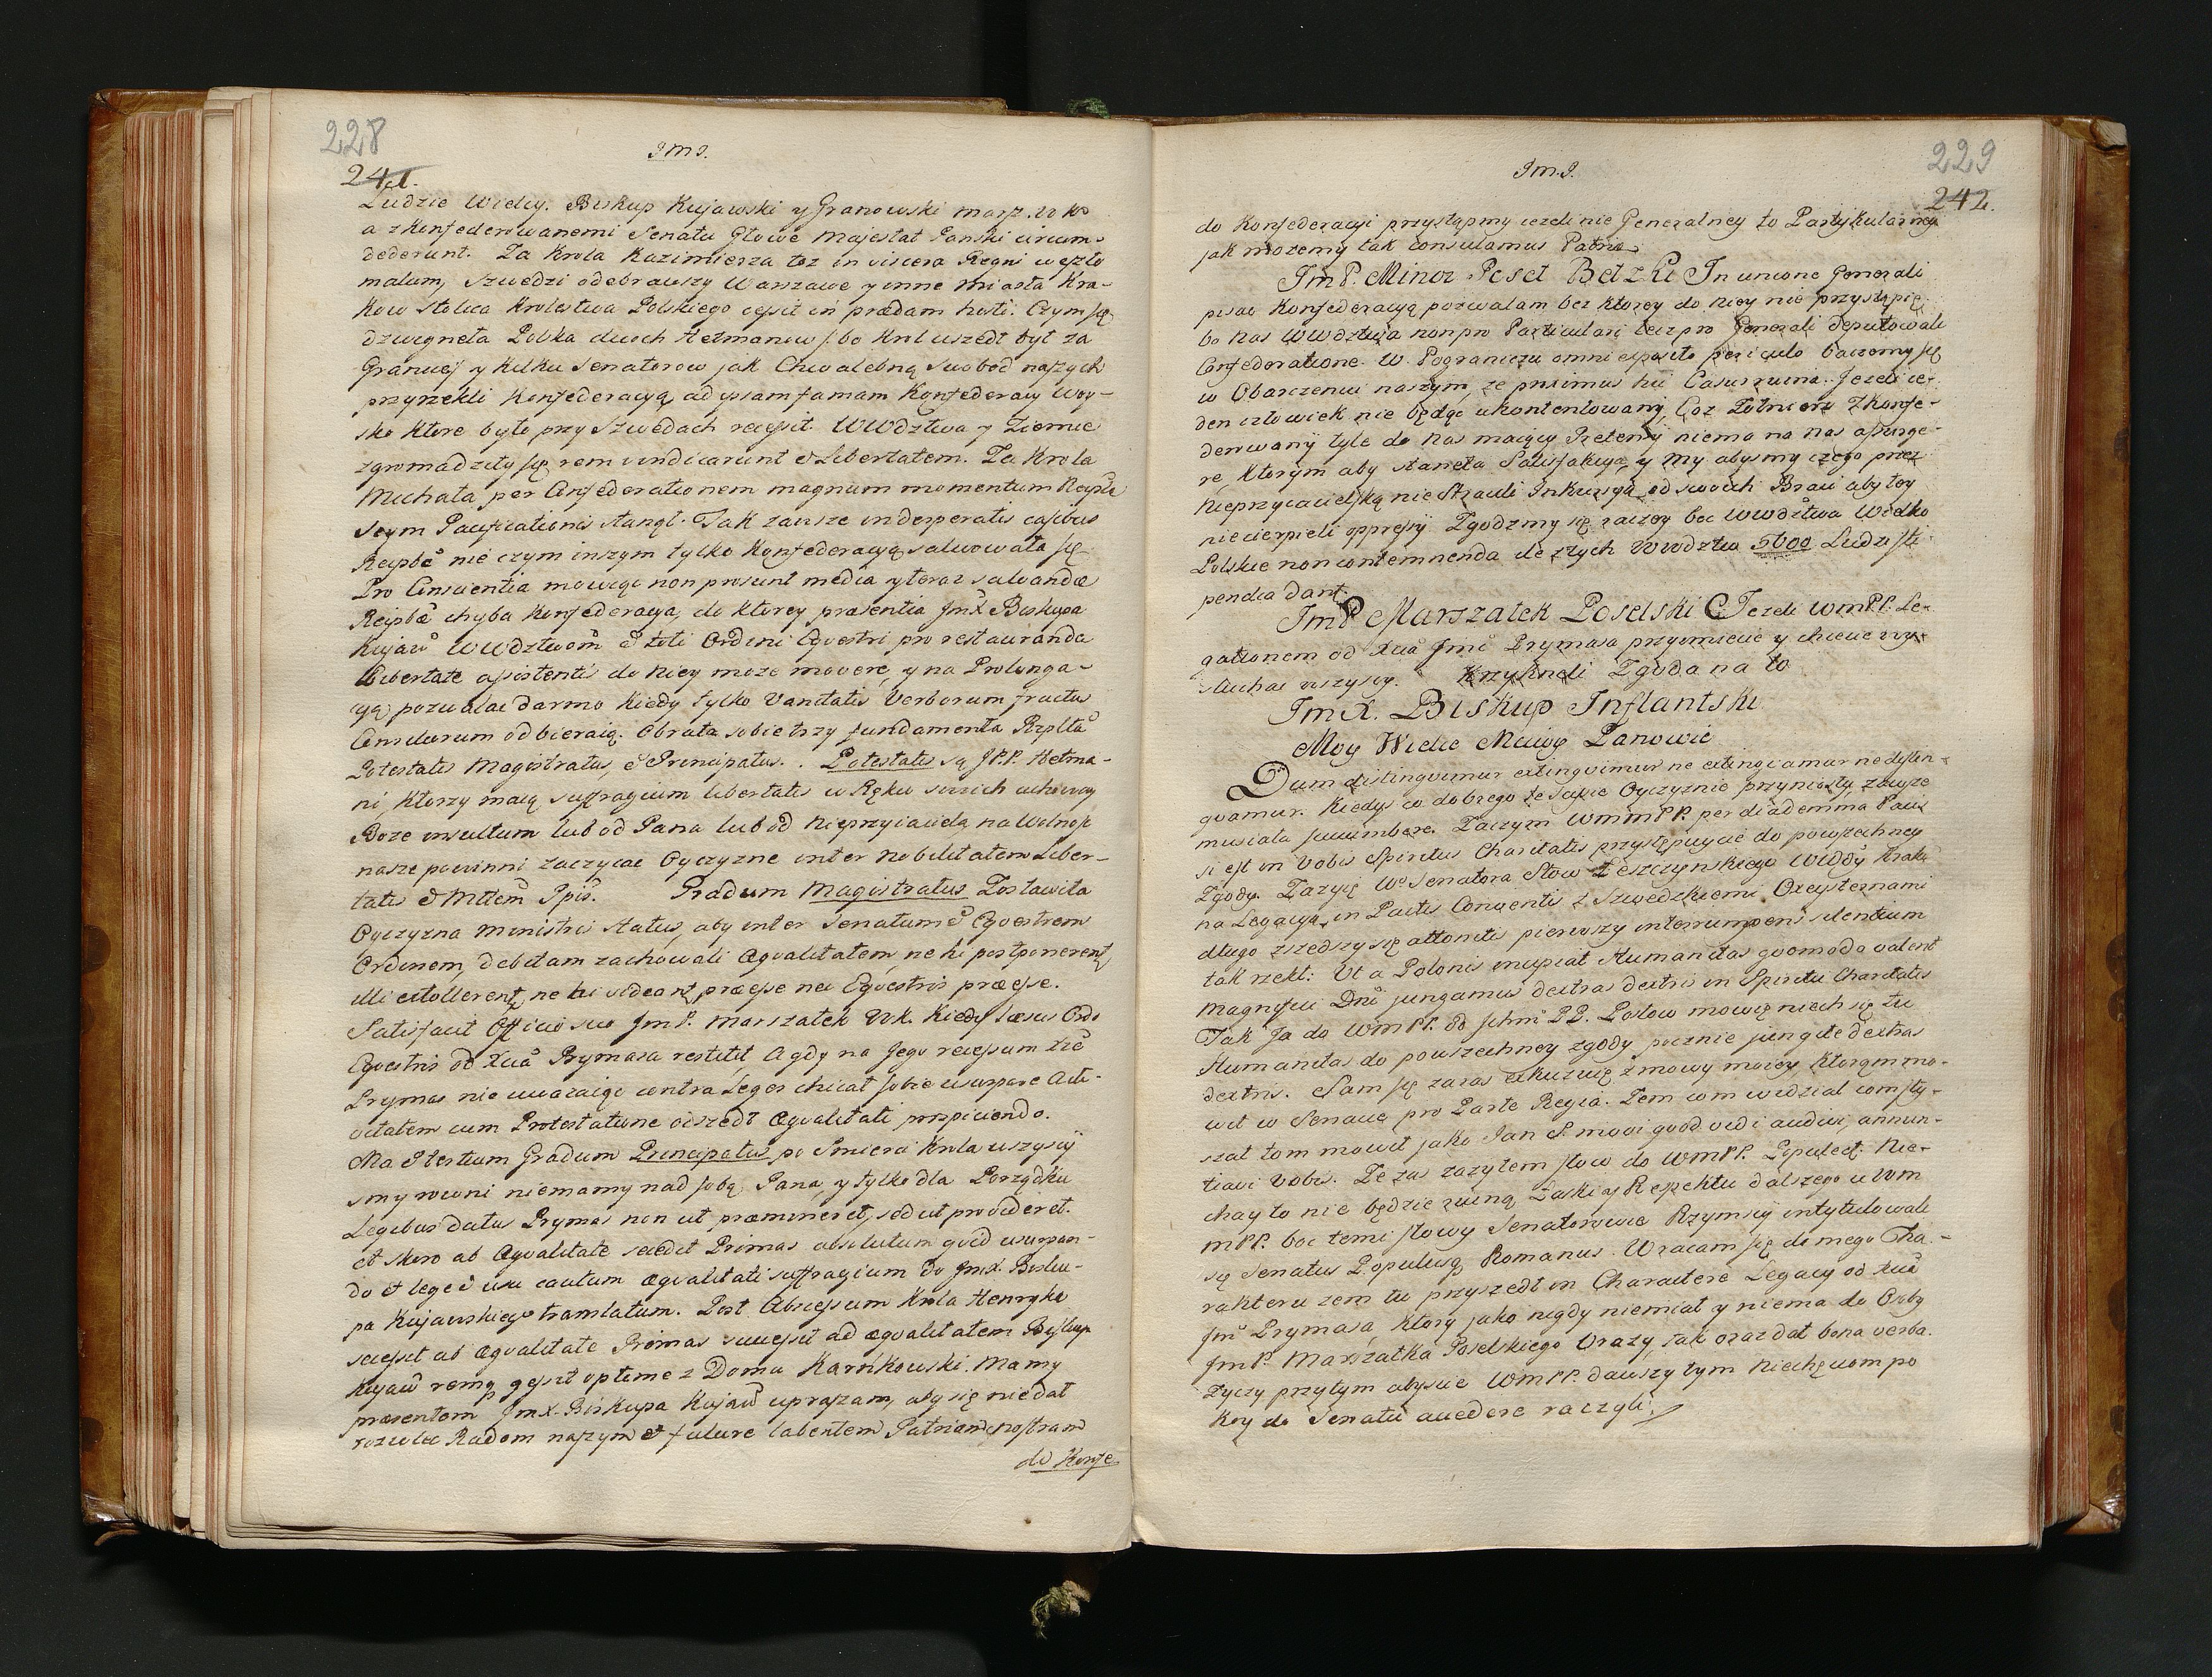 228
241.
J.M.J.
Ludzie Wielcy. Biskup Kujawski y Granowski marsz. W Ko
a zkonfederowanemi Senatu Głowę Majestat Panski circum-
dederunt. Za Krola Kazimierza toż in viscera Regni weszło
malum, Szwedzi odebrawszy Warszawę y inne Miasta Kra-
kow stolica Krolestwa Polskiego cessit in prædam hosti. Czym się
dzwignęła Polska dwoch Hetmanow / bo Krol uszedł był za
Granicę / y kilku Senatorow jak Chwalebną swobod naszych
przyrzekli Konfederacyą, ad ipsam famam Konfederacij Woy-
sko ktore było przy Szwedach recessit. WWdztwa y Ziemie
zgromadziły się rem vindicarunt & Libertatem. Za Krola
Michała per Confederationem magnum momentum Reipblæ
Seym Pacificationis stanął. Tak zawsze in desperatis casibus
Reipbæ nie czym inszym tylko Konfederacyą salwowała się
Pro Conscientia mowię non prosunt media y teraz salvandæ
Reipbæ chyba Konfederacya, do ktorey præsentia JmX Biskupa
Kujaw WWdztwom & toti Ordini Eqvestri pro restauranda
Libertate assistentis do niey może movere, y na Prolonga-
cyą pozwalać darmo kiedy tylko Vanitatis Verborum fructus
Consiliorum odbieraią. Obrała sobie trzy fundamenta Rzplta
Potestatis Magistratus, & Principatus. Potestatis są JPP. Hetma-
ni, ktorzy maią suffragium libertatis w Ręku swoich uchoway
Boże insultum lub od Pana lub od Nieprzyiaciela na Wolnośc
nasze powinni zaszczycać Oyczyznę inter nobilitatem Liber-
tatis & Mttem Ipis. Gradum Magistratus Zostawiła
Oyczyzna Ministris status, aby inter Senatum & Eqvestrem
Ordinem, debitam zachowali Æqvalitatem, ne hi postponerent
illi extollerent, ne hi videant præesse nec Eqvestris præesse.
Satisfacit Officio suo JmP. Marszałek WK. kiedy læsus Ordo
Eqvestris od Xcia Prymasa restitit, a gdy na Jego recessum Xże
Prymas nie uwazaiąc contra Leges chciał sobie usurpare Acti-
vitatem cum Protestatione odszedł Æqvalitati prospiciendo.
Ma & tertium Gradum Principatus, po Smierci Krola wszyscy
smy rowni niemamy nad sobą Pana, y tylko dla Porządku
Legibus datus Prymas non ut præmineret, sed ut provideret.
et skoro ab Æqvalitate secedit Primas absolutum qvid usurpan-
do & lege & usu cautum æqvalitati suffragium do JmX. Bisku-
pa Kujawskiego translatum. Post Abscessum Krola Henryka
secessit ab æqvalitate Primas successit ad æqvalitatem Biskup
Kujaw remq gessit optime z Domu Karnkowski. Mamy
præsentem JmX. Biskupa Kujaw upraszam, aby się nie dał
rozwlec Radom naszym & fulcire labentem Patriam nostram
do Konfe

229
242.
J.M.J.
do Konfederacyi przystąpmy iezeli nie Generalney to Partykularney
jak mozemy tak consulamus Patriæ.
JmP. Minor Poseł Bełzki In unione Generali
pisac Konfederacyą pozwalam bez ktorey do niey nie przystąpię
bo nas WWdztwa non pro Particulari lecz pro Generali deputowali
Confederatione. W Pograniczu omni exposito periculo baczemy się
w Obarczeniu naszym, ze proximus hic Casus ruina. Jezeli ie-
den człowiek nie będąc ukontentowany, Coz Zołnierz Zkonfe-
derowany tyle do nas maiący Pretensij niema na nas assurge-
re, ktorym aby stanęła Satisfakcya, y my abysmy czego przez
nieprzyiacielską nie stracili Inkursyą, od swoich Braci aby tey
niecierpieli oppressij. Zgodzmy się raczey bo WWdztwa Wielko
Polskie non contemnenda ile z tych WWdztw 5000 Ludzi sti-
pendia dant.
JmP. Marszałek Poselski Jezeli WmPP. Le-
gationem od Xcia Jmci Prymasa przyimiecie y chcecie wy-
słuchac wszyscy. Krzyknęli Zgoda na to
JmX. Biskup Inflantski
Moy Wielce Mciwy Panowie
Dum distingvimur extingvimur ne extingvamur ne distin-
gvamur. Kiedys co dobrego te Sessie Oyczyznie przyniosły, zawsze
musiała succumbere. Zaczym WMmPP. per diademma Pacis
si est in Vobis Spiritus Charitatis przystępuycie do powszechney
Zgody. Zazyię We Senatora słow Leszczynskiego WWdy Krako
na Legacyą, in Pactis Conventis z Szwedzkiemi Oxeysternami
długo zszedszy się attoniti pierwszy interrumpens silentium
tak rzekł: Ut a Polonis incipiat Humanitas qvomodo valent
Magnifici Dni jungamus dextras dextris in Spiritu Charitatis
Tak Ja do WmPP. od Ichm PP. Posłow mowię niech się tu
Humanitas do powszechney zgody pocznie jungite dextras
dextris. Sam się zaras exkuzuię z mowy moiey, ktorąm mo-
wił w Senacie pro Parte Regia. Tem com widział com sły-
szał tom mowił jako Jan S. mowi qvod vidi audivi, annun-
tiavi Vobis. Ze zas zazyłem słow do WmPP. Populeq. Nie-
chay to nie będzie winą, Łaski y Respektu dalszego u Wm
MPP. boc temi słowy Senatorowie Rzymscy intytulowali
się Senatus Populusq. Romanus. Wracam się do mego Cha-
rakteru zem tu przyszedł in Charactere Legacij od Xcia
Jmci Prymasa, ktory jako nigdy niemiał y niema do Osoby
JmP. Marszałka Poselskiego Urazy, tak oraz dał bona verba.
Zyczy przytym abyscie WmPP. dawszy tym niechęciom po
koy do Senatu accedere raczyli.